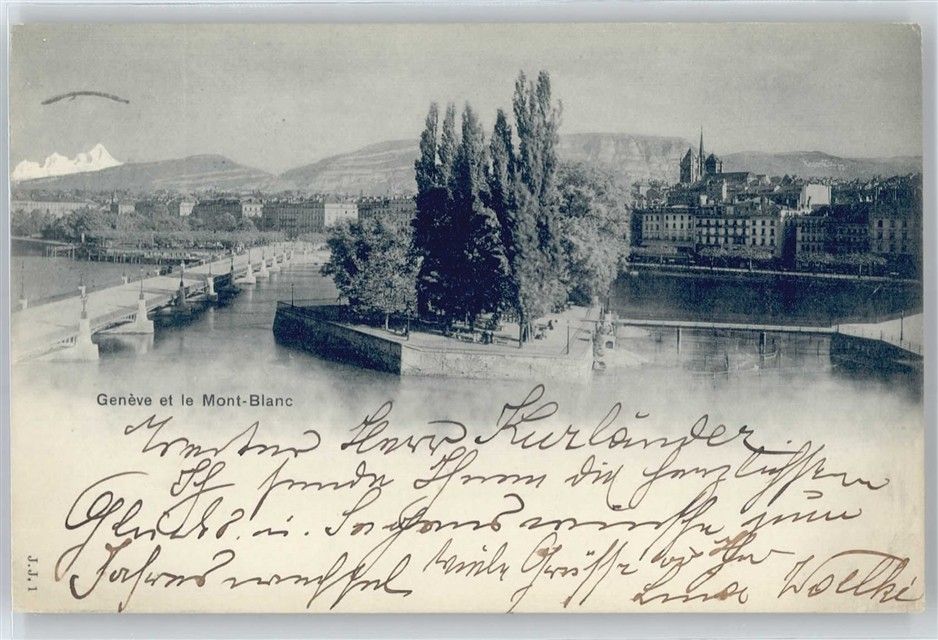 Genève et le Mont-Blanc
Werter Herr Kurländer
Ich sende Ihnen die herzlichsten
Glücks u. Segenswünsche zum
Jahreswechsel Viele Grüsse
Woelke
J. J. 1